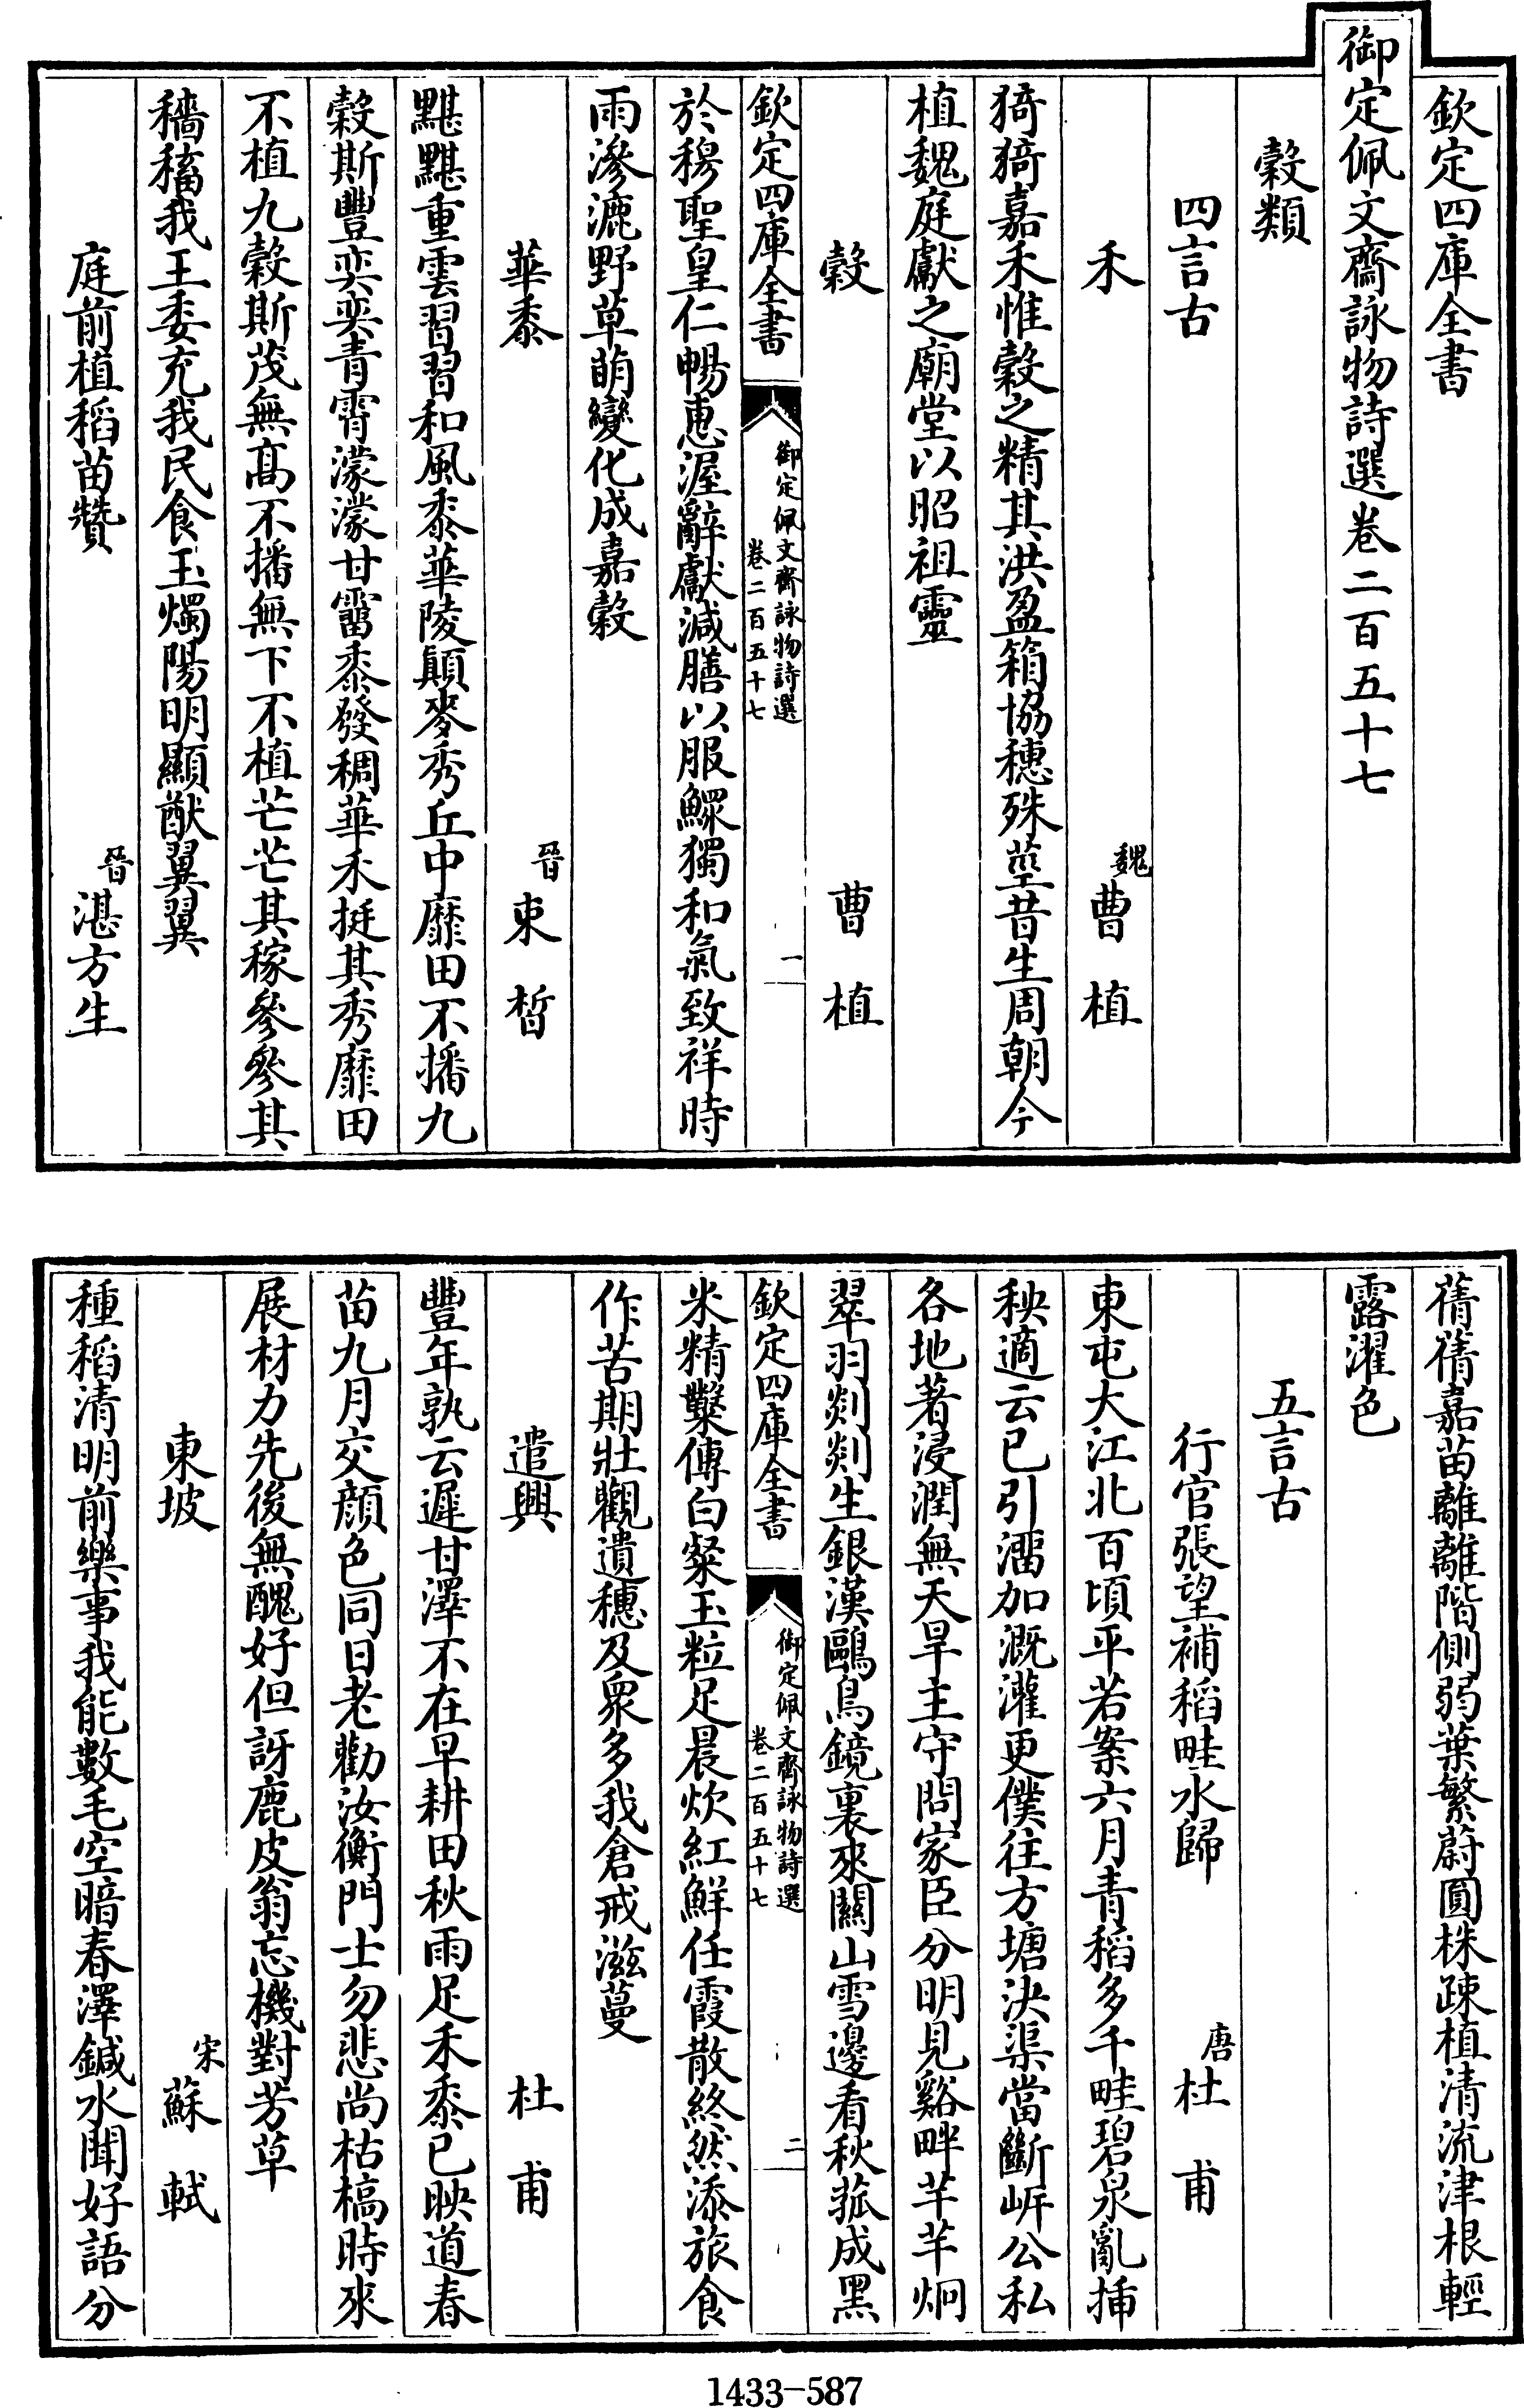 欽定四庫全書
御定佩文齋詠物詩選卷二百五十七
穀類
四言古
禾 魏 曹植
猗猗嘉禾惟穀之精其洪盈箱協穗殊莖昔生周朝今
植魏庭獻之廟堂以昭祖靈
穀 曹植
欽定四庫全書
御定佩文齋詠物詩選
卷二百五十七
一
於穆聖皇仁暢惠渥辭獻減膳以服鰥獨和氣致祥時
雨滲漉野草萌變化成嘉穀
華黍 晉 束晳
黮黮重雲習習和風黍華陵顛麥秀丘中靡田不播九
穀斯豐奕奕青霄濛濛甘霤黍發稠華禾挺其秀靡田
不植九穀斯茂無髙不播無下不植芒芒其稼參參其
穡稸我王委充我民食玉燭陽明顯猷翼翼
庭前植稻苗贊 晉 湛方生
蒨蒨嘉苗離離階側弱葉繁蔚圓株疎植清流津根輕
露濯色
五言古
行官張望補稻畦水歸 唐 杜甫
東屯大江北百頃平若案六月青稻多千畦碧泉亂揷
秧適云已引溜加溉灌更僕往方塘決渠當斷岍公私
各地著浸潤無天旱主守問家臣分明見谿畔芊芊炯
翠羽剡剡生銀漢鷗鳥鏡裏來關山雪邊看秋菰成黑
欽定四庫全書
御定佩文齋詠物詩選
卷二百五十七
二
米精鑿傳白粲玉粒足晨炊紅鮮任霞散終然添旅食
作苦期壯觀遺穗及衆多我倉戒滋蔓
遣興 杜甫
豐年孰云遲甘澤不在早耕田秋雨足禾黍已映道春
苗九月交顔色同日老勸汝衡門士勿悲尚枯槁時來
展材力先後無醜好但訝鹿皮翁忘機對芳草
東坡 宋 蘇軾
種稻清明前樂事我能數毛空暗春澤鍼水聞好語分
1433-587